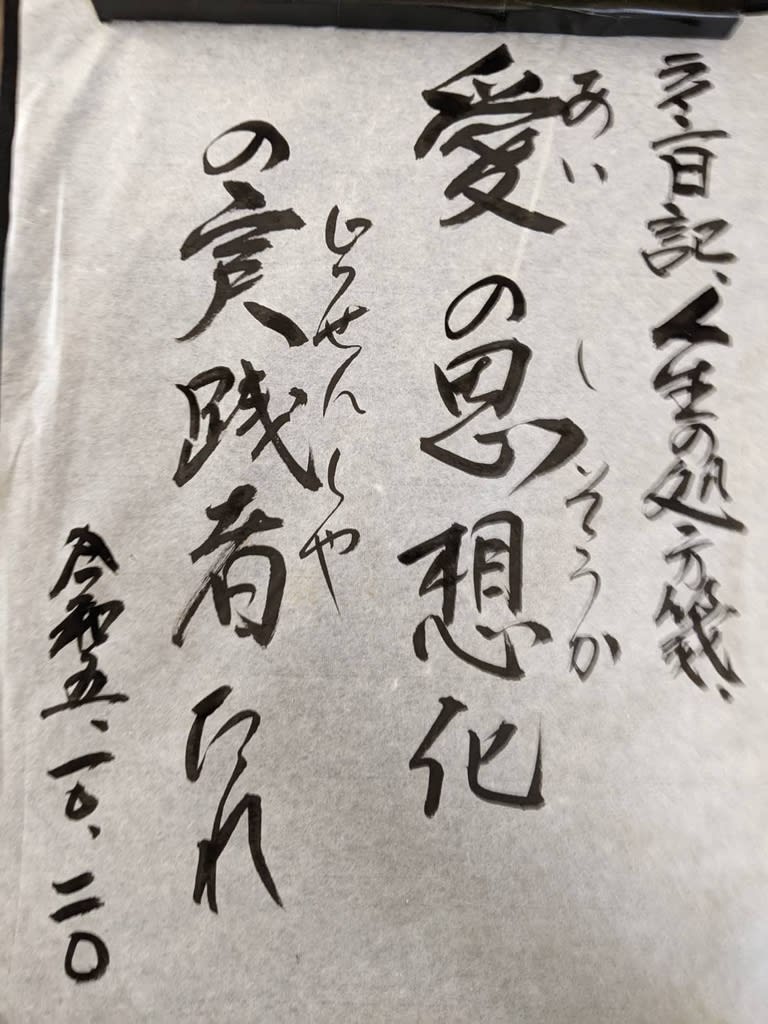 日記、人生の処方箋、
あい
愛の思想化
しそうか
じっせんしゃ
の実践者たれ
令和五、二〇